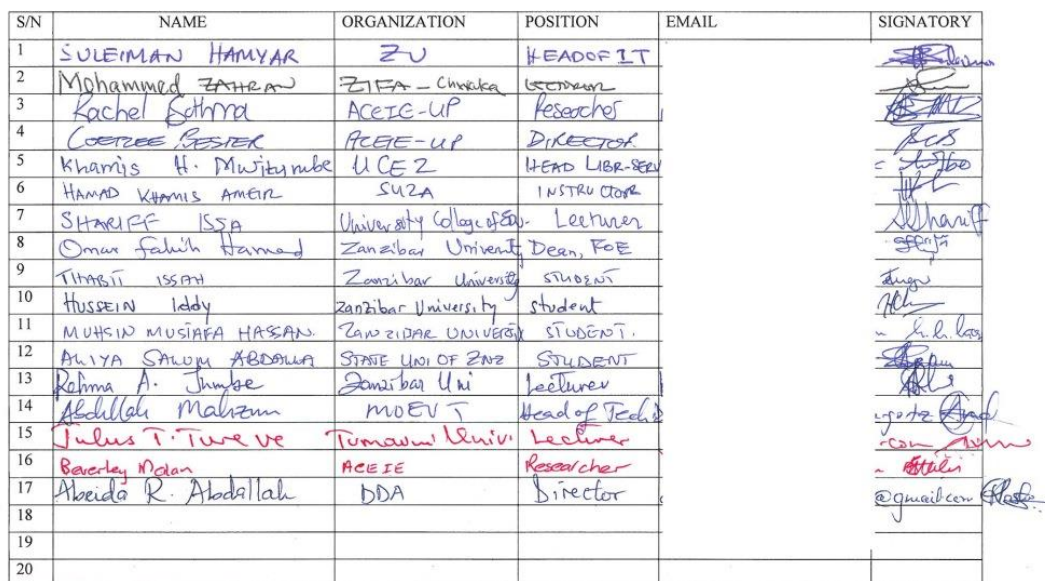 S/N NAME ORGANIZATION POSITION EMAIL SIGNATORY
1 SULEIMAN HAMYAR ZU HEAD OF IT
2 Mohammed ZAHRAN ZIFA - Chwaka LECTURER
3 Rachel Bothma ACEIE-UP Researcher
4 COETZEE BESTER ACEIE-UP DIRECTOR
5 Khamis H. UCEZ HEAD LIBR-SERV
6 HAMAD KHAMIS AMEIR SUZA INSTRUCTOR
7 SHARIFF ISSA University College of Edu- Lecturer Shariff
8 Omar Fakih Hamad Zanzibar University Dean, FOE
9 THABIT ISSAH Zanzibar University STUDENT
10 HUSSEIN Iddy Zanzibar University student
11 MUHSIN MUSTAFA HASSAN. ZANZIBAR UNIVERSITY STUDENT.
12 ALIYA SALUM ABDALLA STATE UNI OF ZNZ STUDENT
13 Rehma A. Jumbe Zanzibar Uni Lecturer
14 Abdillah MOEVT Head of Tech
15 Julus T. Tumaini Univ. Lecturer com
16 Beverley Malan ACEIE Researcher
17 Abeida R. Abdallah DDA Director @gmail.com
18
19
20